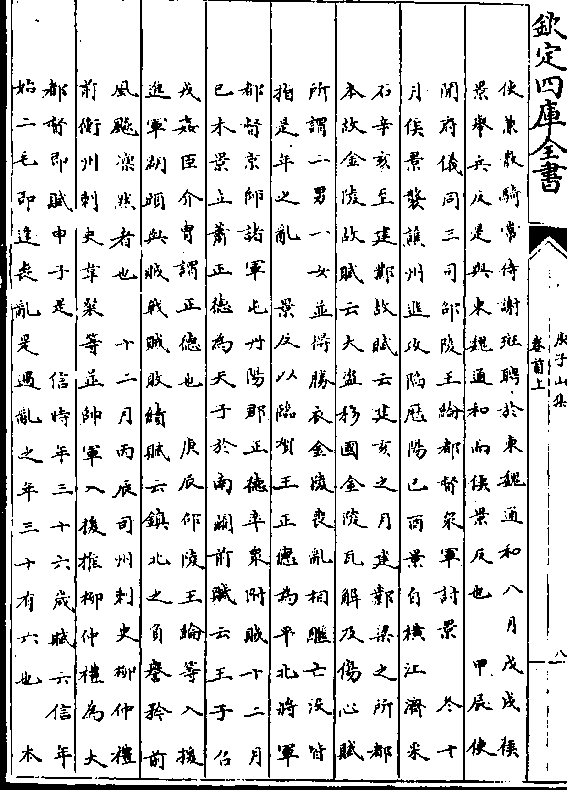 欽定四庫全書
庾子山集
卷首上
八
使兼散騎常侍謝班聘於東魏通和八月戊戌侯
景舉兵反是與東魏通和而侯景反也 甲辰使
開府儀同三司邵陵王綸都督衆軍討景 冬十
月侯景襲譙州進攻陷歷陽己酉景自橫江濟采
石辛亥至建鄴故賦云建亥之月建鄴梁之所都
本故金陵故賦云大盜移國金陵瓦解及傷心賦
所謂二男一女並得勝衣金陵喪亂相繼亡沒皆
指是年之亂 景反以臨賀王正德為平北將軍
都督京師諸軍屯丹陽郡正德率衆附賊十二月
己未景立蕭正德為天子於南闕前賦云王子召
戎姦臣介胄謂正德也 庚辰邵陵王綸等入援
進軍湖頭與賊戰賊敗績賦云鎮北之負譽矜前
風飈凛然者也 十二月丙辰司州刺史柳仲禮
前衡州刺史韋粲等並帥軍入援推柳仲禮為大
都督即賦申子是 信時年三十六歲賦云信年
始二毛即逢喪亂是遇亂之年三十有六也 木